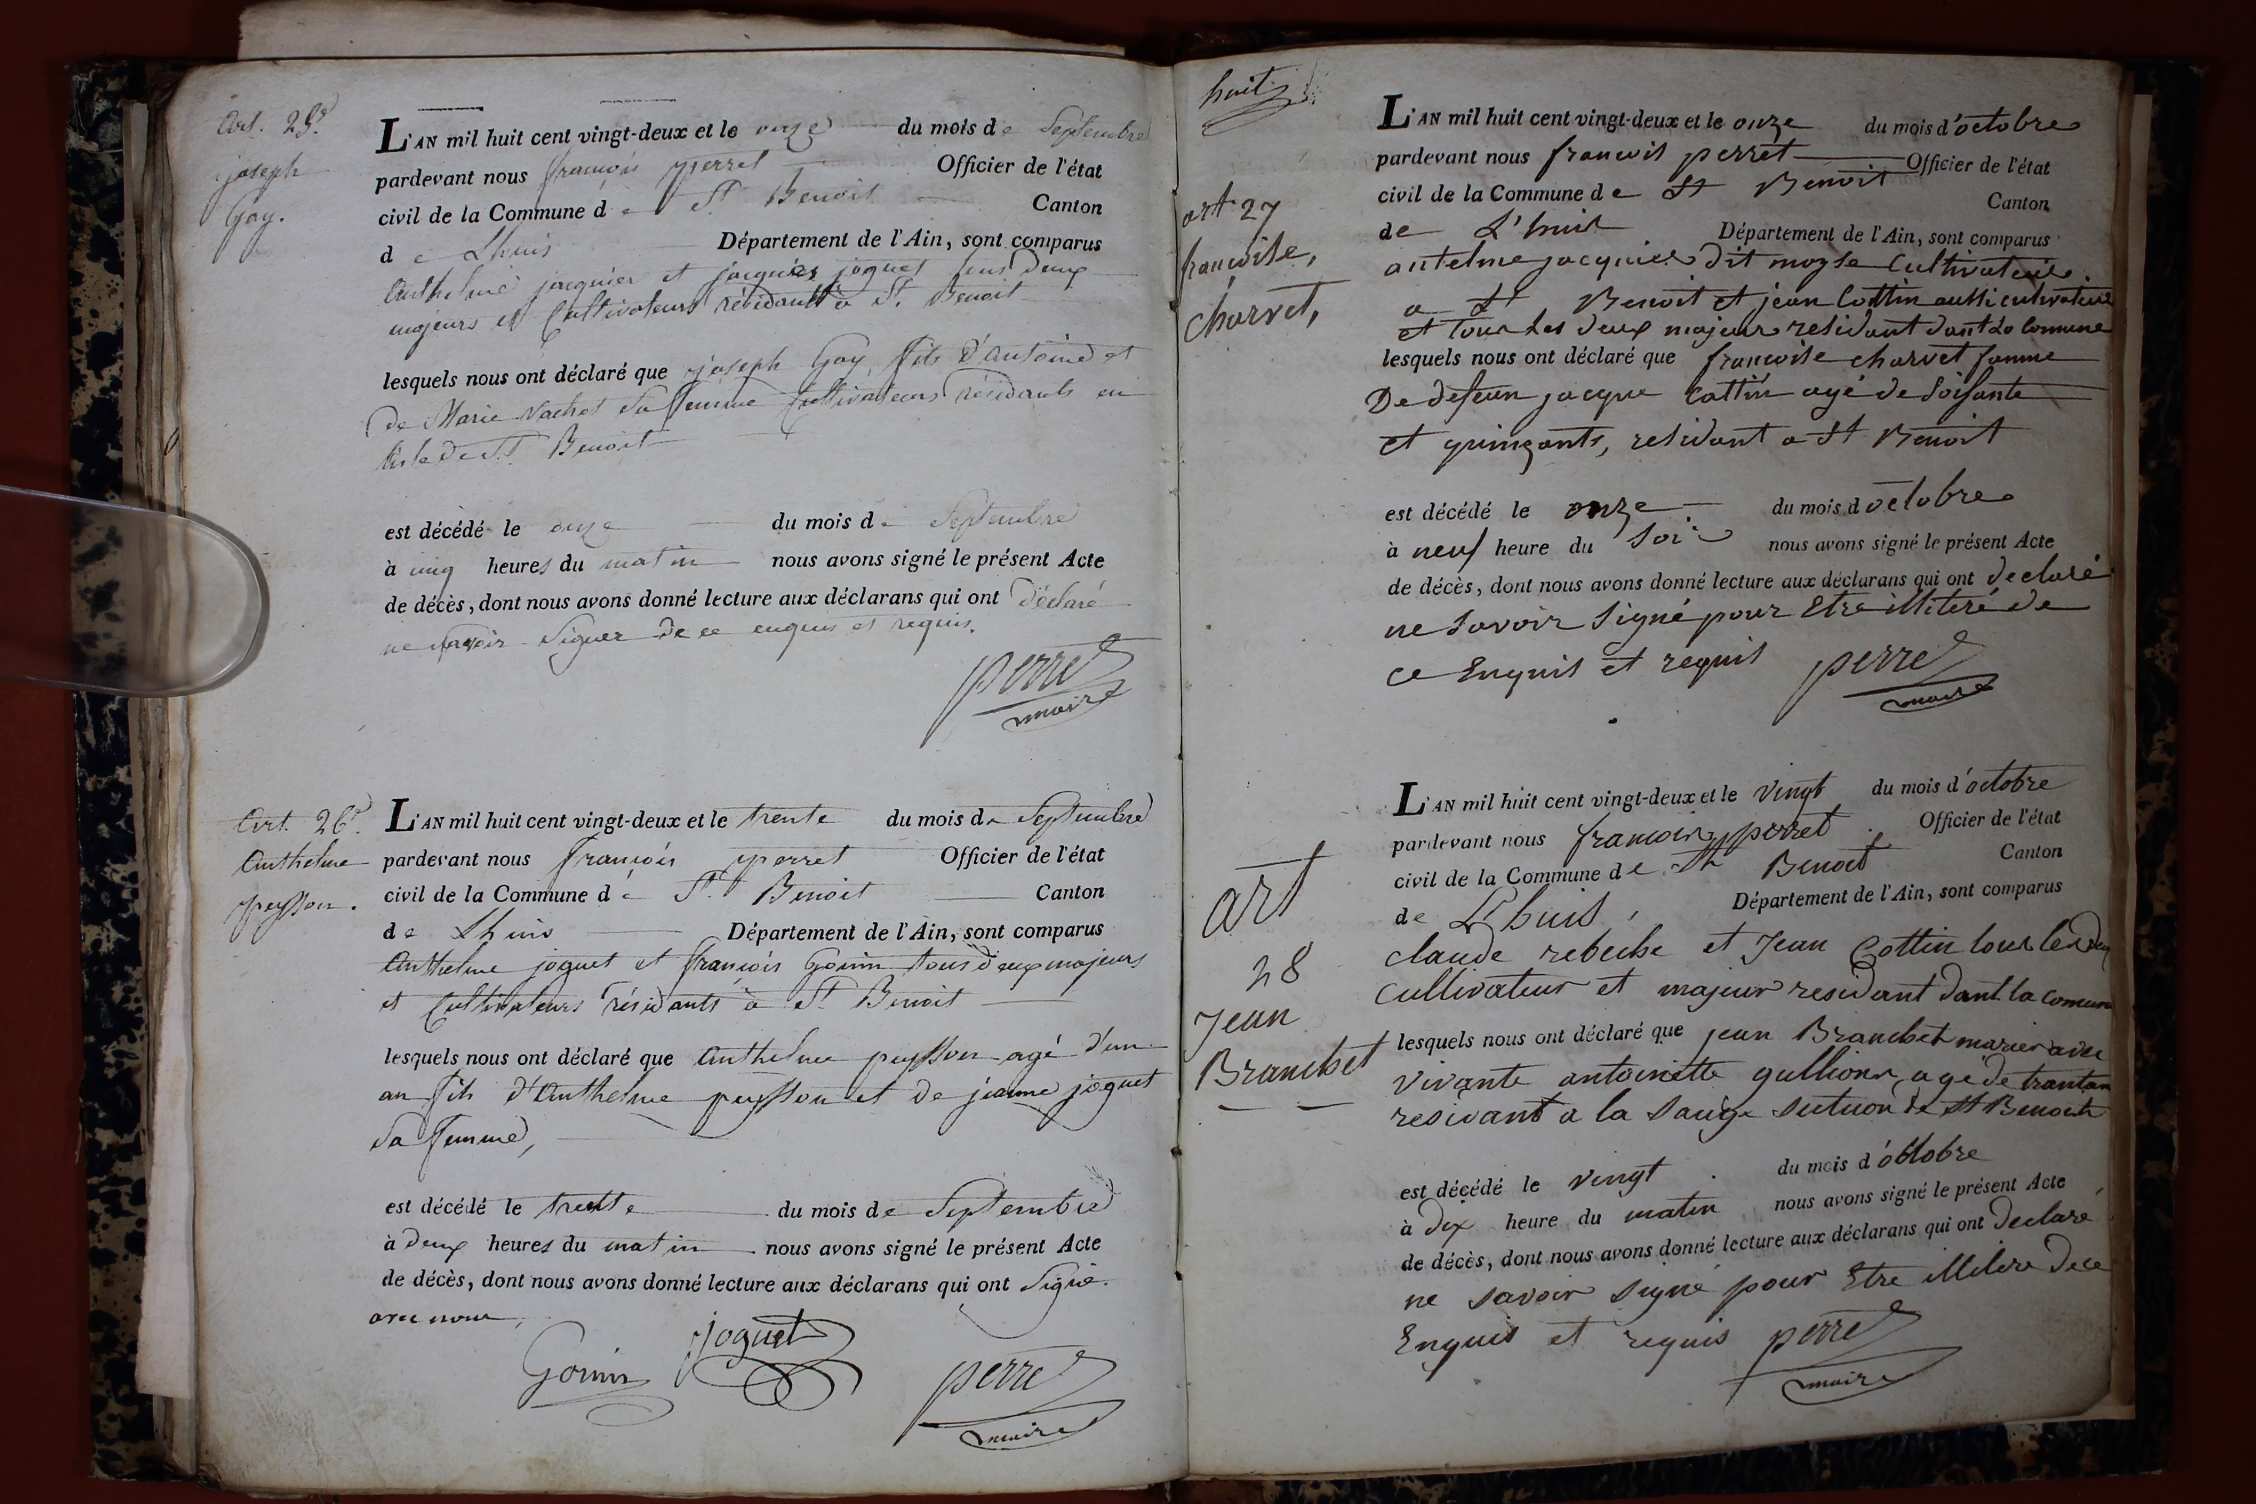 Art. 25e.
joseph
Gay.
L'AN mil huit cent vingt-deux et le onze du mois de Septembre
pardevant nous françois perret Officier de l'état
civil de la Commune de St. Benoit Canton
de Lhuis Département de l'Ain, sont comparus
Anthelme jacquier et jacques joguet tous deux
majeurs et Cultivateurs résidants à St. Benoit
lesquels nous ont déclaré que joseph Gay, fils d'antoine et
de Marie Vachet sa femme Cultivateurs résidants en
de St. Benoit
est décédé le onze du mois de Septembre
à cinq heures du matin nous avons signé le présent Acte
de décès, dont nous avons donné lecture aux déclarans qui ont déclaré
ne savoir signer de ce enquis et requis.
perret
maire
Art. 26e.
Anthelme
peysson.
L'AN mil huit cent vingt-deux et le trente du mois de Septembre
pardevant nous françois perret Officier de l'état
civil de la Commune dé St. Benoit Canton
de Lhuis Département de l'Ain, sont comparus
Anthelme joguet et françois Gonin tous deux majeurs
et Cultivateurs résidants à St. Benoit
lesquels nous ont déclaré que Anthelme peysson agé d'un
an fils d'Anthelme peysson et de jeanne joguet
sa femme,
est décédé le trente du mois de Septembre
à deux heures du matin nous avons signé le présent Acte
de décès, dont nous avons donné lecture aux déclarans qui ont Signé
avec nous
Gonin joguet
perret
maire
huit
art 27
francoise,
charvet,
L'AN mil huit cent vingt-deux et le onze du mois d'octobre
pardevant nous francois perret Officier de l'état
civil de la Commune de St Benoit Canton
de L'huis Département de l'Ain, sont comparus
antelme jacquier dit moyse Cultivateur
a St Benoit et jean Cottin aussi cultivateur
et tous les deux majeur residant dant la Comune
lesquels nous ont déclaré que francoise charvet famme
De defeun jacque Cottin agé de soisante
et quinzants, residant a St Benoit
est décédé le onze du mois d'octobre
à neuf heure du soir nous avons signé le présent Acte
de décès, dont nous avons donné lecture aux déclarans qui ont declaré
ne savoir signé pour Etre illiteré de
ce Enquis et requis perret
maire
art
28
Jean
Branchet
L'AN mil huit cent vingt-deux et le vingt du mois d'octobre
pardevant nous francois perret Officier de l'état
civil de la Commune de St Benoit Canton
de L'huis, Département de l'Ain, sont comparus
claude rebeche et Jean Cottin tous les deux
Cultivateur et majeur residant dant la comune
lesquels nous ont déclaré que jean Branchet marier avec
vivante antoinette gullion agé de trantan
residant a la Sauge section de St Benoit
est décédé le vingt du mois d'octobre
à dix heure du matin nous avons signé le présent Acte
de décès, dont nous avons donné lecture aux déclarans qui ont declaré
ne savoir signé pour Etre illitere de ce
Enquis et requis perret
maire